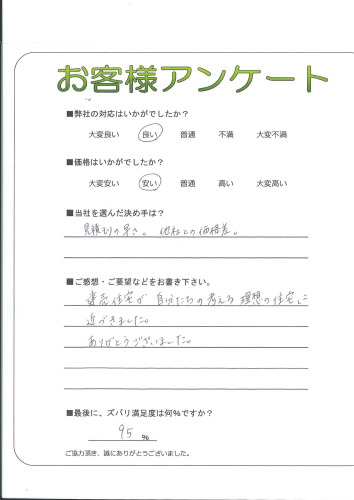 お客様アンケート
■弊社の対応はいかがでしたか?
大変良い 良い 普通 不満 大変不満
■価格はいかがでしたか?
大変安い 安い 普通 高い 大変高い
■当社を選んだ決め手は?
見積もりの早さ。 他社との価格差。
■ご感想・ご要望などをお書き下さい。
建売住宅が 自分たちの考える 理想の住宅に
近づきました。
ありがとうございました。
■最後に、ズバリ満足度は何%ですか?
95 %
ご協力頂き、誠にありがとうございました。